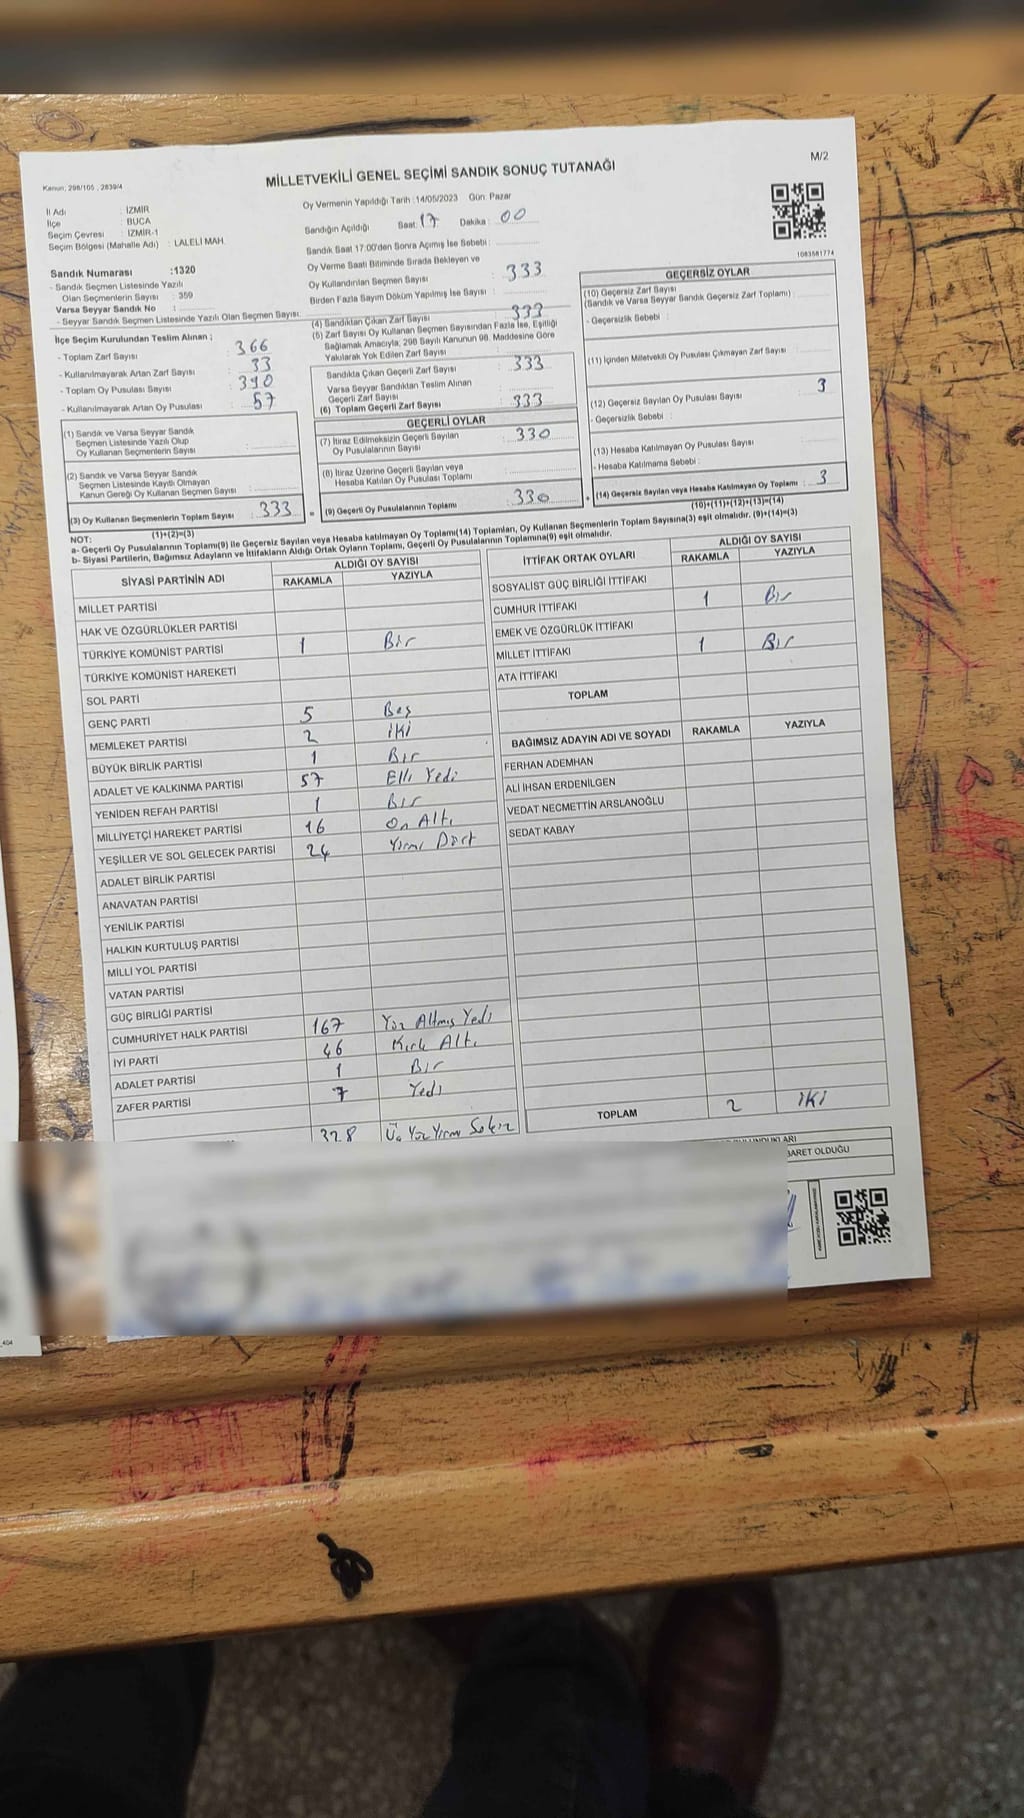 M/2
Kanun, 298/105 , 2839/4
MİLLETVEKİLİ GENEL SEÇİMİ SANDIK SONUÇ TUTANAĞI
İl Adı : İZMİR
İlçe : BUCA
Seçim Çevresi : İZMİR-1
Seçim Bölgesi (Mahalle Adı) : LALELİ MAH.
Oy Vermenin Yapıldığı Tarih :14/05/2023 Gün: Pazar
Sandığın Açıldığı Saat: 17 Dakika : 00
Sandık Saat 17:00'den Sonra Açımış İse Sebebi :
Oy Verme Saati Bitiminde Sırada Bekleyen ve
Oy Kullandırılan Seçmen Sayısı : 333
Birden Fazla Sayım Döküm Yapılmış İse Sayısı :
1083581774
Sandık Numarası :1320
- Sandık Seçmen Listesinde Yazılı
Olan Seçmenlerin Sayısı : 359
Varsa Seyyar Sandık No :
- Seyyar Sandık Seçmen Listesinde Yazılı Olan Seçmen Sayısı:
İlçe Seçim Kurulundan Teslim Alınan ;
- Toplam Zarf Sayısı : 366
- Kullanılmayarak Artan Zarf Sayısı : 33
- Toplam Oy Pusulası Sayısı : 390
- Kullanılmayarak Artan Oy Pusulası : 57
(1) Sandık ve Varsa Seyyar Sandık
Seçmen Listesinde Yazılı Olup
Oy Kullanan Seçmenlerin Sayısı :
(2) Sandık ve Varsa Seyyar Sandık
Seçmen Listesinde Kayıtlı Olmayan
Kanun Gereği Oy Kullanan Seçmen Sayısı :
(3) Oy Kullanan Seçmenlerin Toplam Sayısı : 333 =
(1)+(2)=(3)
(4) Sandıktan Çıkan Zarf Sayısı : 333
(5) Zarf Sayısı Oy Kullanan Seçmen Sayısından Fazla İse, Eşitliği
Sağlamak Amacıyla, 298 Sayılı Kanunun 98. Maddesine Göre
Yakılarak Yok Edilen Zarf Sayısı :
Sandıkta Çıkan Geçerli Zarf Sayısı : 333
Varsa Seyyar Sandıktan Teslim Alınan
Geçerli Zarf Sayısı :
(6) Toplam Geçerli Zarf Sayısı : 333
GEÇERLİ OYLAR
(7) İtiraz Edilmeksizin Geçerli Sayılan
Oy Pusulalarının Sayısı : 330
(8) İtiraz Üzerine Geçerli Sayılan veya
Hesaba Katılan Oy Pusulası Toplamı :
(9) Geçerli Oy Pusulalarının Toplamı : 330 +
GEÇERSİZ OYLAR
(10) Geçersiz Zarf Sayısı
(Sandık ve Varsa Seyyar Sandık Geçersiz Zarf Toplamı) :
- Geçersizlik Sebebi :
(11) İçinden Milletvekili Oy Pusulası Çıkmayan Zarf Sayısı :
(12) Geçersiz Sayılan Oy Pusulası Sayısı : 3
- Geçersizlik Sebebi :
(13) Hesaba Katılmayan Oy Pusulası Sayısı :
- Hesaba Katılmama Sebebi :
(14) Geçersiz Sayılan veya Hesaba Katılmayan Oy Toplamı : 3
(10)+(11)+(12)+(13)=(14)
NOT:
a- Geçerli Oy Pusulalarının Toplamı(9) ile Geçersiz Sayılan veya Hesaba katılmayan Oy Toplamı(14) Toplamları, Oy Kullanan Seçmenlerin Toplam Sayısına(3) eşit olmalıdır. (9)+(14)=(3)
b- Siyasi Partilerin, Bağımsız Adayların ve İttifakların Aldığı Ortak Oyların Toplamı, Geçerli Oy Pusulalarının Toplamına(9) eşit olmalıdır.
SİYASİ PARTİNİN ADI ALDIĞI OY SAYISI
RAKAMLA YAZIYLA
MİLLET PARTİSİ
HAK VE ÖZGÜRLÜKLER PARTİSİ
TÜRKİYE KOMÜNİST PARTİSİ 1 Bir
TÜRKİYE KOMÜNİST HAREKETİ
SOL PARTİ
GENÇ PARTİ 5 Beş
MEMLEKET PARTİSİ 2 iki
BÜYÜK BİRLİK PARTİSİ 1 Bir
ADALET VE KALKINMA PARTİSİ 57 Elli Yedi
YENİDEN REFAH PARTİSİ 1 Bir
MİLLİYETÇİ HAREKET PARTİSİ 16 On Altı
YEŞİLLER VE SOL GELECEK PARTİSİ 24 Yirmi Dört
ADALET BİRLİK PARTİSİ
ANAVATAN PARTİSİ
YENİLİK PARTİSİ
HALKIN KURTULUŞ PARTİSİ
MİLLİ YOL PARTİSİ
VATAN PARTİSİ
GÜÇ BİRLİĞİ PARTİSİ
CUMHURİYET HALK PARTİSİ 167 Yüz Altmış Yedi
İYİ PARTİ 46 Kırk Altı
ADALET PARTİSİ 1 Bir
ZAFER PARTİSİ 7 Yedi
328 Üç Yüz Yirmi Sekiz
İTTİFAK ORTAK OYLARI ALDIĞI OY SAYISI
RAKAMLA YAZIYLA
SOSYALİST GÜÇ BİRLİĞİ İTTİFAKI
CUMHUR İTTİFAKI 1 Bir
EMEK VE ÖZGÜRLÜK İTTİFAKI
MİLLET İTTİFAKI 1 Bir
ATA İTTİFAKI
TOPLAM
BAĞIMSIZ ADAYIN ADI VE SOYADI RAKAMLA YAZIYLA
FERHAN ADEMHAN
ALİ İHSAN ERDENİLGEN
VEDAT NECMETTİN ARSLANOĞLU
SEDAT KABAY
TOPLAM 2 iki
BARET OLDUĞU